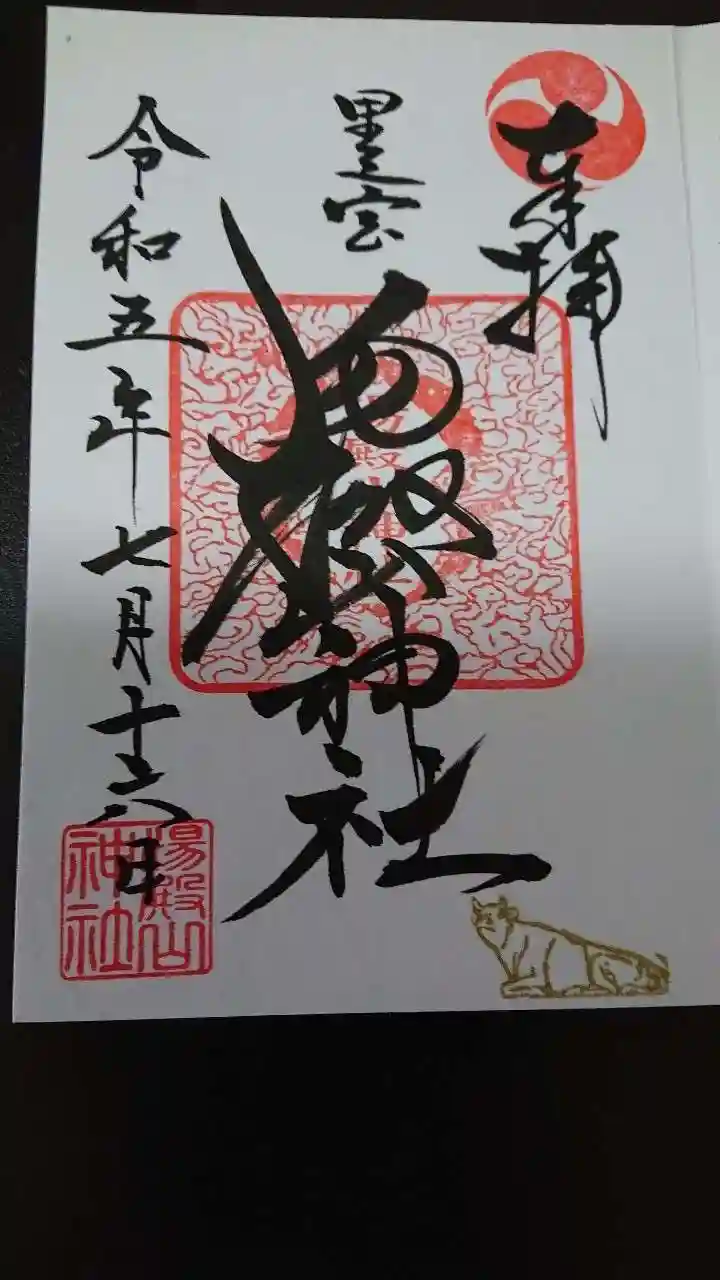 奉拝
里之宮
湯殿山神社
令和五年七月十六日
湯殿山
神社